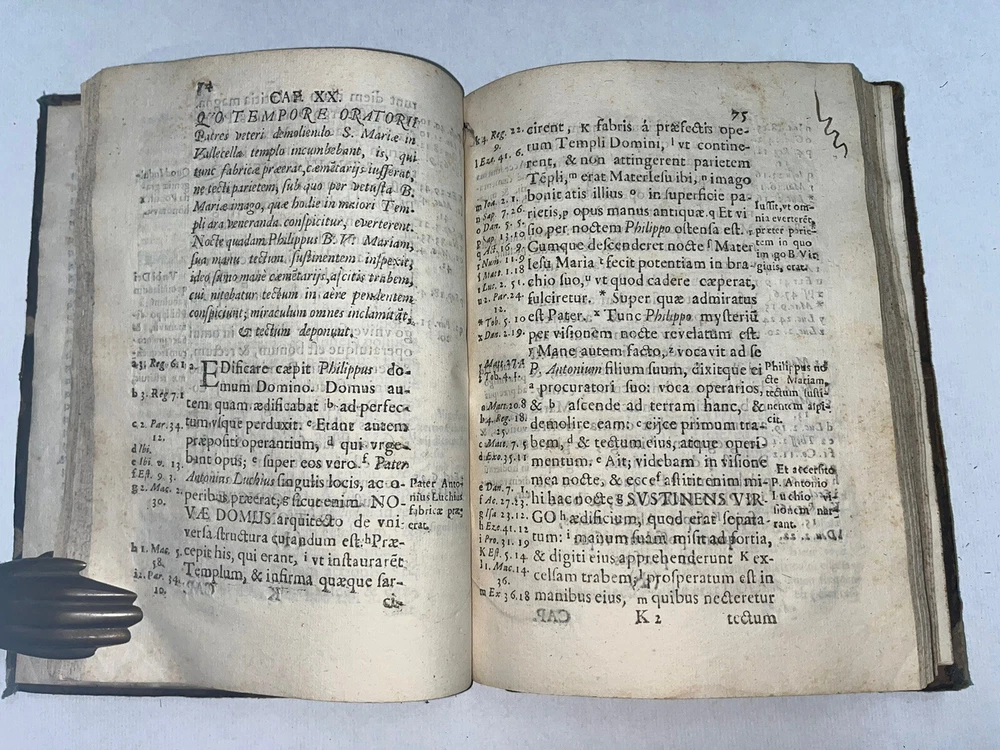 74
CAP. XX.
QVO TEMPORE ORATORII
Patres veteri demoliendo S. Mariæ in
Vallecella templo incumbebant, is, qui
tunc fabricæ præerat, cæmẽtarijs iusserat,
ne tecti parietem, sub quo per vetusta B.
Mariæ imago, quæ hodie in maiori Tem-
pli ara veneranda conspicitur, everterent.
Nocte quadam Philippus B. V. Mariam,
sua manu tectum sustinentem inspexit;
ideo summo manè cæmẽtarijs, ascitis trabem,
cui nitebatur tectum in aere pendentem
conspiciunt; miraculum omnes inclamitãt,
& tectum deponunt.
a 3. Reg. 6. 1
b 3. Reg 7. 1
c 2. Par. 34.
12.
d Ibi.
e Ibi v. 13.
f Est. 9 3.
g 2. Mac. 2.
30.
h 1. Mac. 5.
58.
i 2. Par. 34.
10.
a EDificare cæpit Philippus do-
mum Domino. Domus au-
tem quam ædificabat b ad perfec-
tum vsque perduxit. c Erant autem
præpositi operantium, d qui vrge-
bant opus; e super eos vero f Pater
Antonius Luchius singulis locis, ac o-
peribus præerat; g sicut enim NO-
VÆ DOMUS arquitecto de vni-
versa structura curandum est. h Præ-
cepit his, qui erant, i vt instaurarẽt
Templum, & infirma quæque sar-
ci-
Pater Anto-
nius Luchius
fabricæ præ-
erat.
75
k 4. Reg. 22.
9.
l Eze. 41. 6.
m Ioa. 2. 1.
n Sap. 7. 26.
o Dan. 5. 5.
p Sap. 13. 10
q Act. 16. 9.
r Num. 11. 9
s Matt. 1. 18
t Luc. 1. 51.
u 2. Par. 24.
12.
* Tob. 5. 10
x Dan. 2. 19.
y Matt. 27. 1
z Tob. 4. 1.
a Matt. 20. 8
b 4. Reg. 18.
25.
c Matt. 7. 5
d Exo. 35. 11
e Dan. 7. 2.
f Ac. 27. 23.
g Isa 23. 12
h Eze. 41. 12
i Pro. 31. 19
K Est. 5. 14
l 1. Mac. 14.
36.
m Ex 36. 18
cirent, K fabris á præfectis ope-
rum Templi Domini, l vt contine-
rent, & non attingerent parietem
Tẽpli, m erat Mater Iesu ibi, n imago
bonitatis illius o in superficie pa-
rietis, p opus manus antiquæ. q Et vi
sio per noctem Philippo ostensa est.
Cumque descenderet nocte s Mater
Iesu Maria t fecit potentiam in bra-
chio suo, u vt quod cadere cæperat,
fulciretur. * Super quæ admiratus
est Pater. x Tunc Philippo mysteriũ
per visionem nocte revelatum est.
y Mane autem facto, z vocavit ad se
P. Antonium filium suum, dixitque ei
a procuratori suo: voca operarios,
& b ascende ad terram hanc, &
demolire eam: c eijce primum tra-
bem, d & tectum eius, atque operi-
mentum. e Ait; videbam in visione
mea nocte, & ecce f astitit enim mi-
hi hac nocte g SVSTINENS VIR-
GO h ædificium, quod erat separa-
tum: i manum suam misit ad fortia,
& digiti eius apprehenderunt K ex-
celsam trabem, l prosperatum est in
manibus eius, m quibus necteretur
K 2
tectum
Iussit, vt om-
nia everterẽt,
preter parie-
tem in quo
imago B Vir
giuis, erat.
Philippus no
cte Mariam,
tectum susti-
nentem aspi-
cit.
Et accersito
P. Antonio
Luchio vi-
sionem nar-
rant.